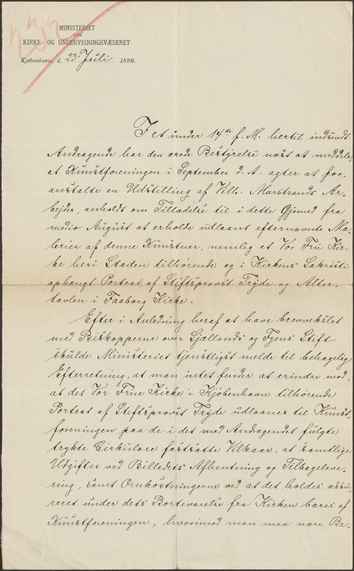 MINISTERIET
FOR
KIRKE- OG UNDERVISNINGSVÆSENET
Kjøbenhavn, d. 23 Juli 1898.
I et under 14de f. M. hertil indsendt
Andragende har den ærede Bestyrelse næst at meddele,
at Kunstforeningen i September d. A. agter at for-
anstalte en Udstilling af Vilh. Marstrands Ar-
bejder, anholdt om Tilladelse til i dette Øjemed fra
medio August at erholde udlaant efternævnte Ma-
lerier af denne Kunstner, nemlig et Vor Frue Kir-
ke her i Staden tilhørende og i Kirkens Sakristi
ophængt Portræt af Stiftsprovst Tryde og Alter-
tavlen i Faaborg Kirke.
Efter i Anledning heraf at have brevvexlet
med Biskopperne over Sjællands og Fyens Stift
skulde Ministeriet tjenstligst melde til behagelig
Efterretning, at man intet finder at erindre mod,
at det Vor Frue Kirke i Kjøbenhavn tilhørende
Portræt af Stiftsprovst Tryde udlaanes til Kunst-
foreningen paa de i det med Andragendet fulgte
trykte Cirkulære fastsatte Vilkaar, at samtlige
Udgifter ved Billedets Afhentning og Tilbagelever-
ing, samt Omkostningerne ved at det holdes assu-
reret under dets Bortværelse fra Kirken bæres af
Kunstforeningen, hvorimod man maa nære Be-